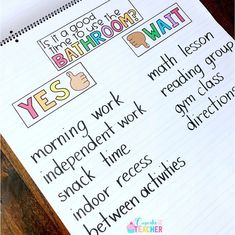 Is it a good
time to use the
BATHROOM?
YES
morning work
independent work
snack time
indoor recess
between activities
WAIT
math lesson
reading group
gym class
directions
Cupcake
TEACHER